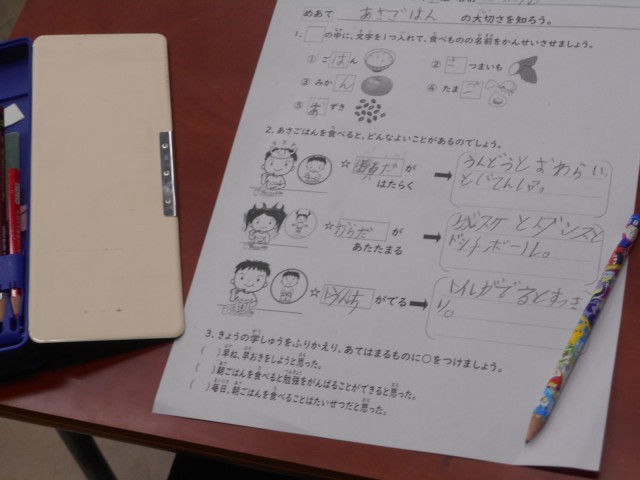 めあて あさごはん の大切さを知ろう。
1. □の中に、文字を1つ入れて、食べものの名前をかんせいさせましょう。
① ごはん ② さつまいも
③ みかん ④ たまご
⑤ あずき
2. あさごはんを食べると、どんなよいことがあるのでしょう。
☆ が
はたらく
うんどうと おわらい
とじてんしゃ。
☆ からだ が
あたたまる
バスケ とダンスと
ドッチボール。
☆ うんち がでる
トイレがでるとすっき
り。
3. きょうの学しゅうをふりかえり、あてはまるものに○をつけましょう。
( )早ね、早おきをしようと思った。
( )朝ごはんを食べると勉強をがんばることができると思った。
( )毎日、朝ごはんを食べることはたいせつだと思った。